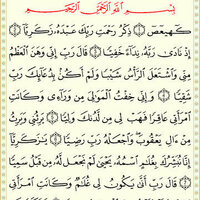 بِسْمِ ٱللَّهِ ٱلرَّحْمَٰنِ ٱلرَّحِيمِ
كٓهيعٓصٓ ۝١ ذِكْرُ رَحْمَتِ رَبِّكَ عَبْدَهُۥ زَكَرِيَّآ ۝٢
إِذْ نَادَىٰ رَبَّهُۥ نِدَآءً خَفِيًّا ۝٣ قَالَ رَبِّ إِنِّى وَهَنَ ٱلْعَظْمُ
مِنِّى وَٱشْتَعَلَ ٱلرَّأْسُ شَيْبًا وَلَمْ أَكُنۢ بِدُعَآئِكَ رَبِّ
شَقِيًّا ۝٤ وَإِنِّى خِفْتُ ٱلْمَوَٰلِىَ مِن وَرَآءِى وَكَانَتِ
ٱمْرَأَتِى عَاقِرًا فَهَبْ لِى مِن لَّدُنكَ وَلِيًّا ۝٥ يَرِثُنِى وَيَرِثُ
مِنْ ءَالِ يَعْقُوبَ ۖ وَٱجْعَلْهُ رَبِّ رَضِيًّا ۝٦ يَٰزَكَرِيَّآ
إِنَّا نُبَشِّرُكَ بِغُلَٰمٍ ٱسْمُهُۥ يَحْيَىٰ لَمْ نَجْعَل لَّهُۥ مِن قَبْلُ سَمِيًّا
۝٧ قَالَ رَبِّ أَنَّىٰ يَكُونُ لِى غُلَٰمٌ وَكَانَتِ ٱمْرَأَتِى